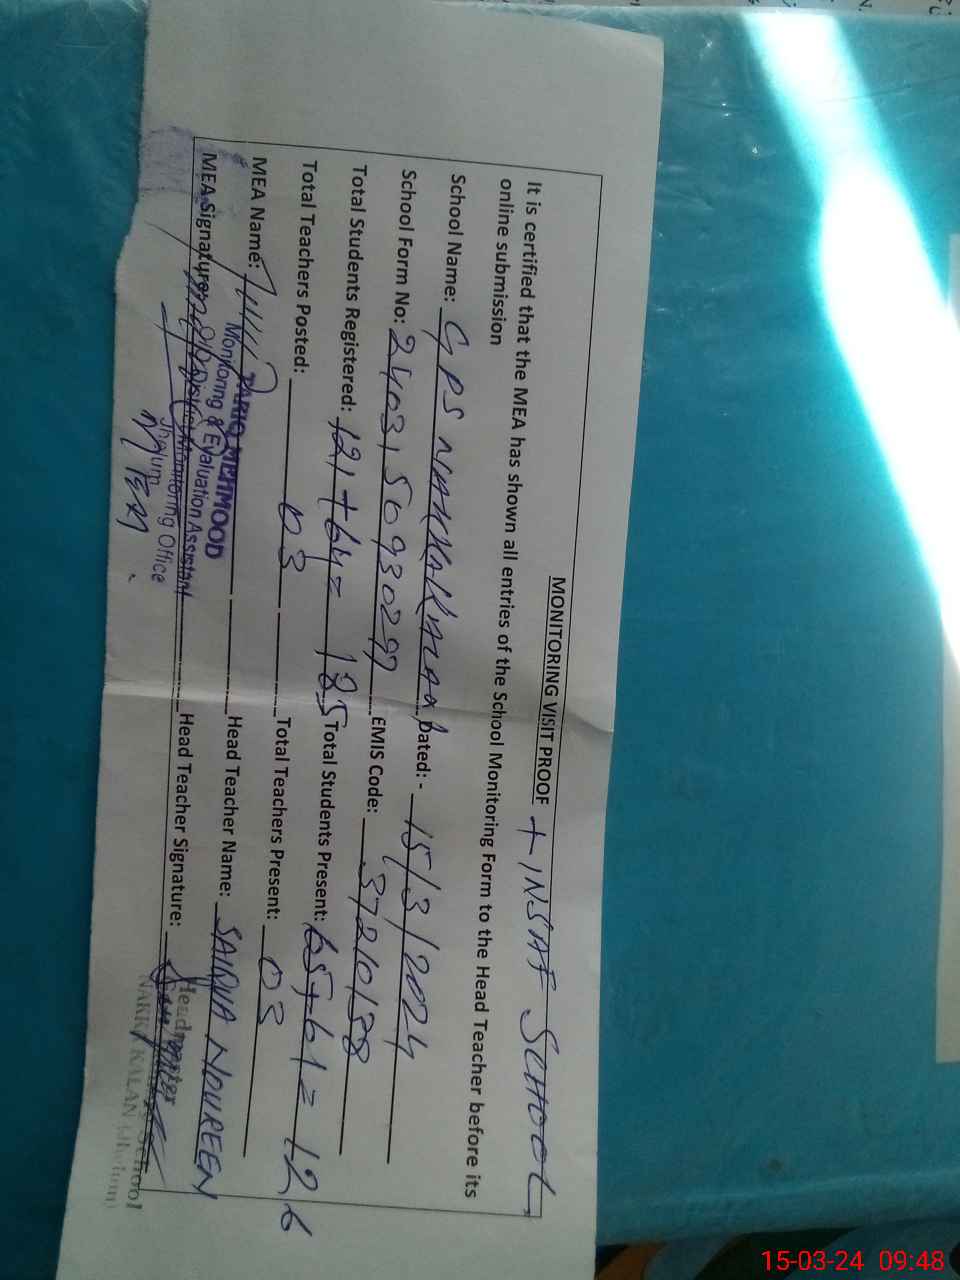 MONITORING VISIT PROOF + INSAF SCHOOL
It is certified that the MEA has shown all entries of the School Monitoring Form to the Head Teacher before its
online submission
School Name: GPS Dated: - 15/3/2024
School Form No: EMIS Code: 37210188
Total Students Registered: 121+64= 185 Total Students Present: 65+61= 126
Total Teachers Posted: 03 Total Teachers Present: 03
MEA Name: Head Teacher Name: SAIQUA NOUREEN
TARIQ MEHMOOD
Monitoring & Evaluation Assistant
MEA Signature: Head Teacher Signature:
District Monitoring Office
Jhelum
Headmaster
School
NAKKA KALAN (Jhelum)
15-03-24 09:48